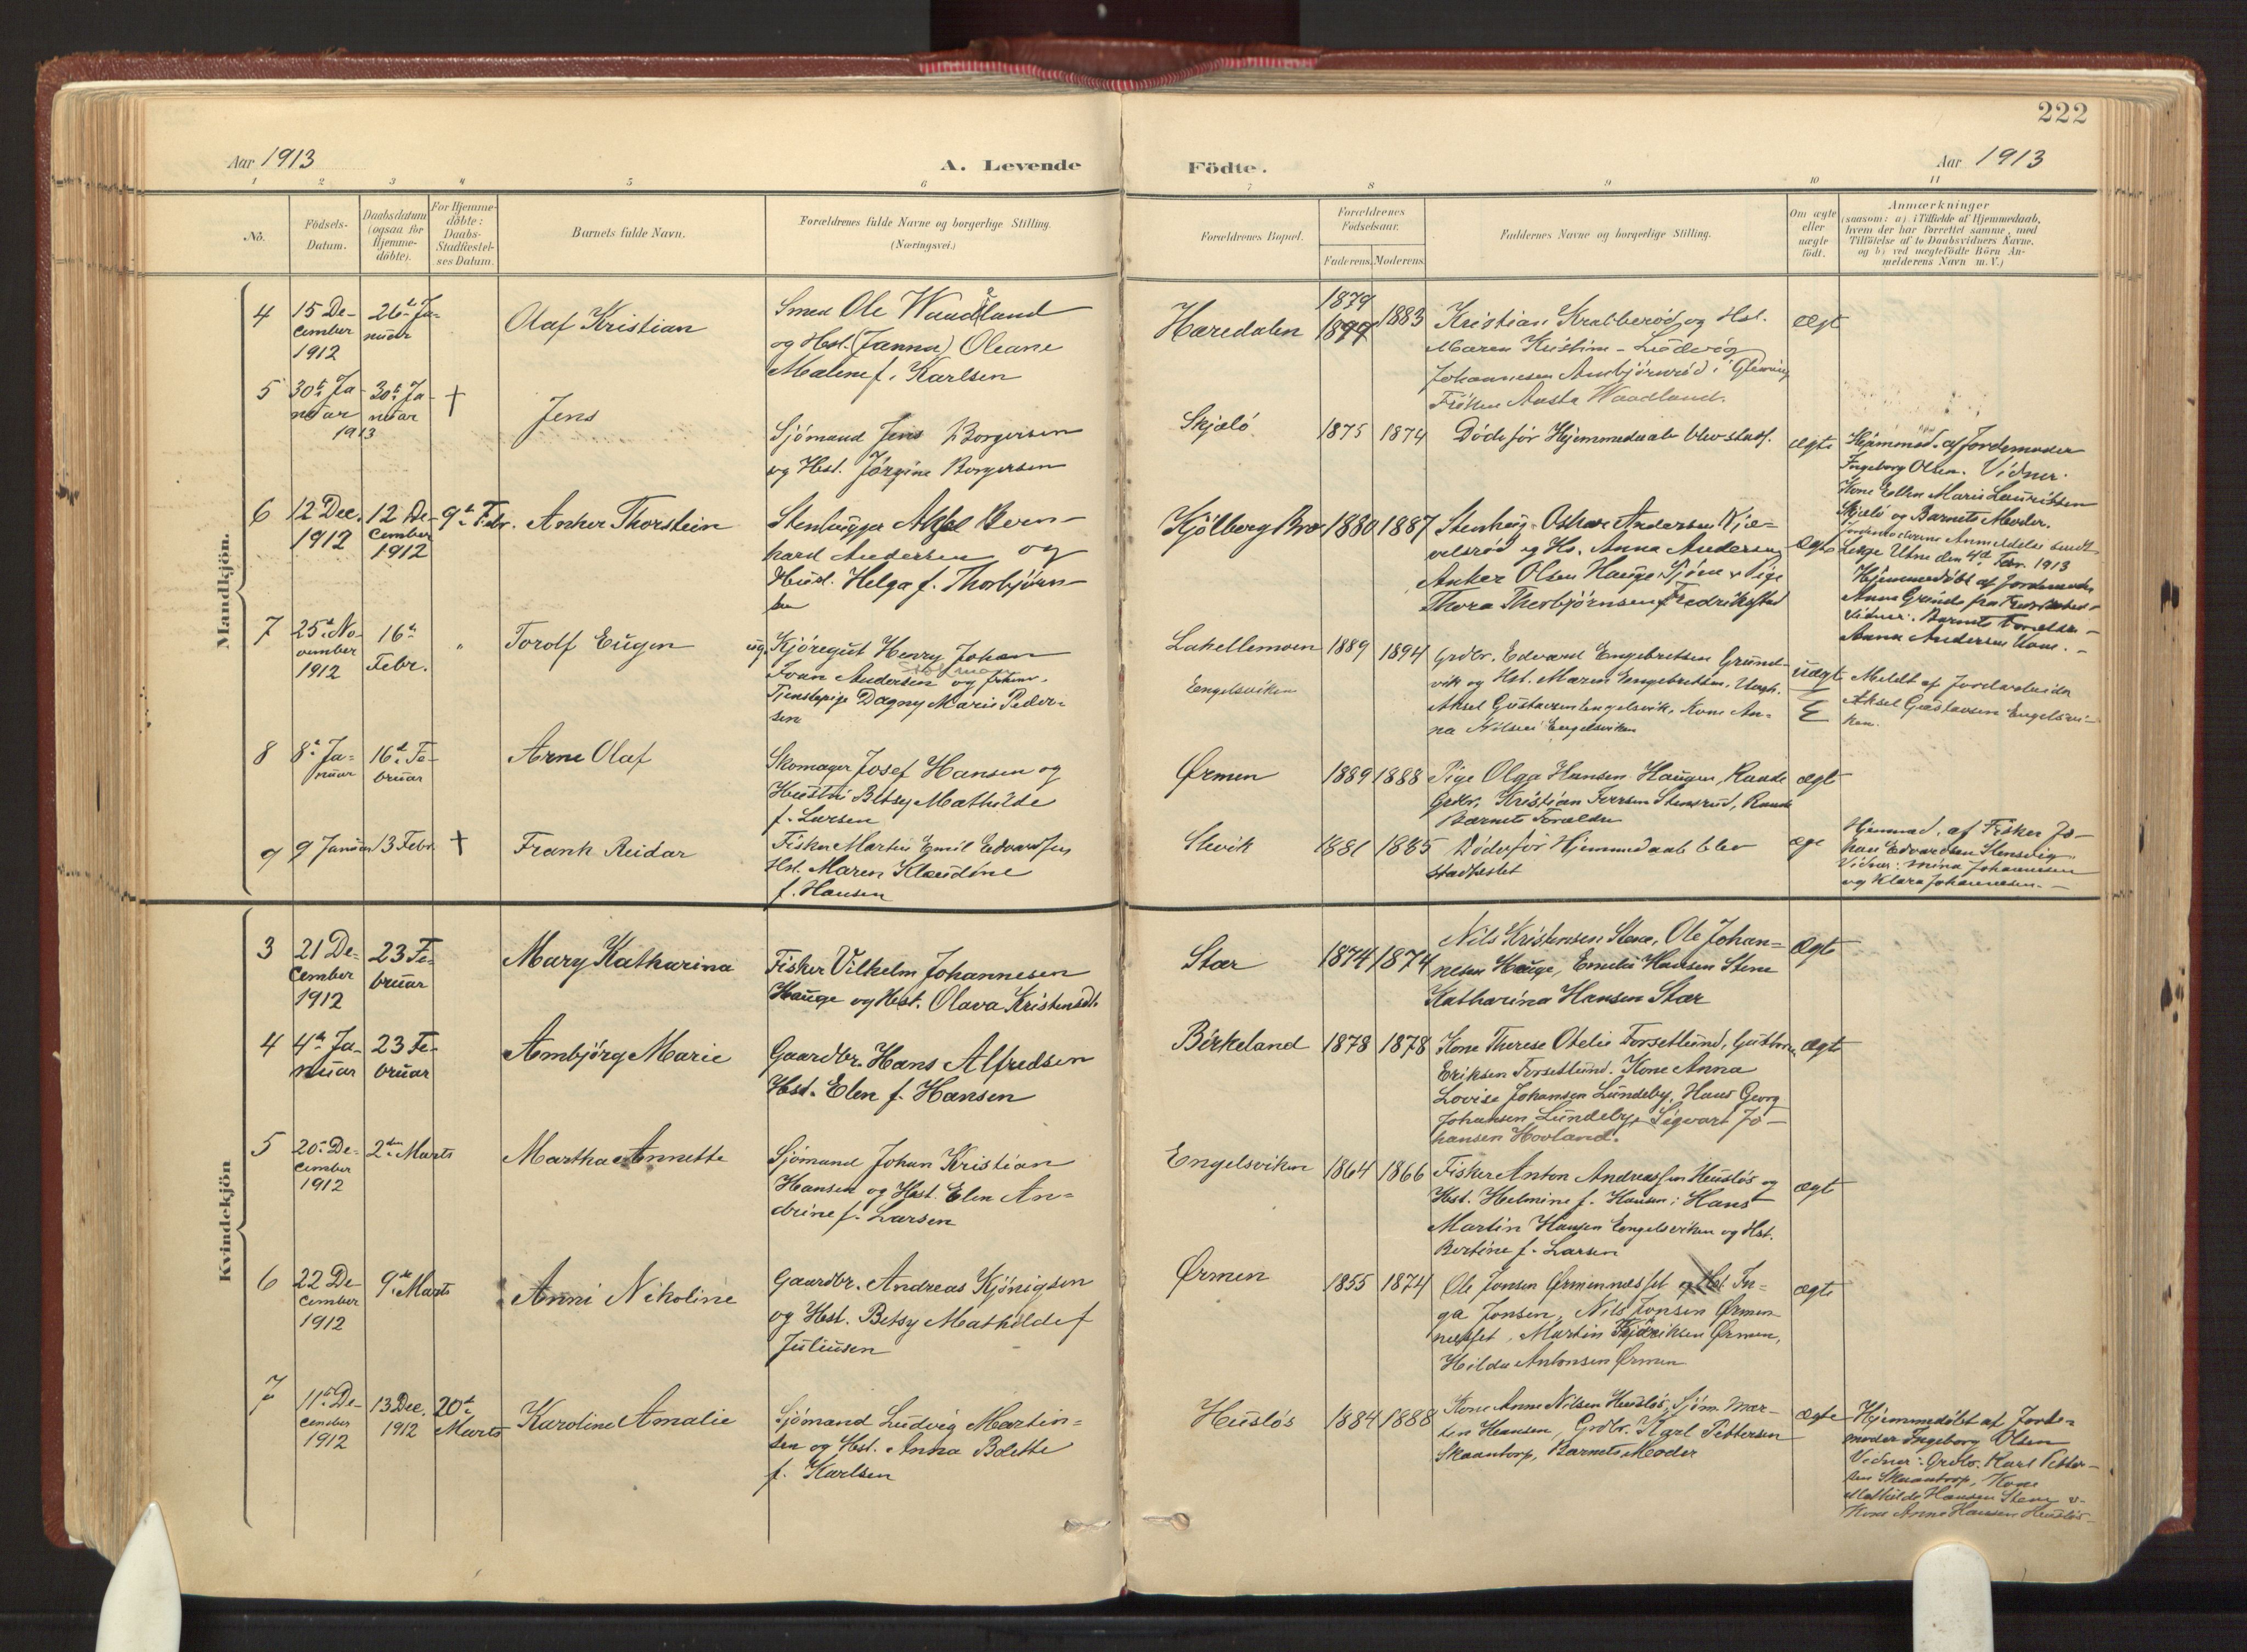 222
Aar 1913
A. Levende
Födte.
Aar 1913
1 2 3 4 5 6 7 8 9 10 11
No.
Födsels-
Datum.
Daabsdatum
(ogsaa for
Hjemme-
döbte).
For Hjemme-
döbte:
Daabs-
Stadfæstel-
ses Datum.
Barnets fulde Navn.
Forældrenes fulde Navne og borgerlige Stilling.
(Næringsvei.)
Forældrenes Bopæl.
Forældrenes
Födselsaar.
Faderens. Moderens.
Faddernes Navne og borgerlige Stilling.
Om ægte
eller
uægte
födt.
Anmærkninger
(saasom: a) i Tilfælde af Hjemmedaab,
hvem der har forrettet samme, med
Tilföielse af to Daabsvidners Navne,
og b) ved uægtefödte Börn An-
melderens Navn m. V.)
Mandkjön.
4
15 De-
cember
1912
26de Ja-
nuar
Olaf Kristian
Smed Ole Waadeland
og Hst. (Janna) Oleane
Malene f. Karlsen
Haredalen
1879
1899
1883
Kristian Krabberöd og Hst.
Maren Kristine - Ludvig
Johannesen Ambjörnröd i Glemminge
Fröken Aasta Waadland.
ægt
5
30te Ja-
nuar
1913
30te Ja-
nuar
+
Jens
Sjömand Jens Borgersen
og Hst. Jörgine Borgersen
Skjælö
1875
1874
Döde för Hjemmedaab blev stadf.
ægte
Hjemmed. af Jordemoder
Ingeborg Olsen. Vidner.
Kone Ellen Marie Lauritsen
Skjælö og Barnets Moder.
Jordemoderens Anmeldelse sendt
Læge Utne den 4de Febr. 1913
6
12 Dec.
1912
12 De-
cember
1912
9de Febr.
Anker Thorstein
Stenhugger Aksel Bern-
hard Andersen og
Hust. Helga f. Thorbjörn-
sen
Kjölberg Bro
1880
1887
Stenhug. Oskar Andersen
og Hs. Anna Andersen
Anker Olsen Hauge, Sjöm. & Pige
Thora Thorbjörnsen Fredrikstad
ægte
Hjemmedöbt af Jordemoder
Anna Grinde fra Fredrikstad
Vidner: Barnets Forældre -
Anna Andersen Kone. -
7
25de No-
vember
1912
16de
Febr.
"
Torolf Eugen
ug. Kjöregut Henry Johan
Ivan Andersen og
Tjenstepige Dagny Marie Peder-
sen
Lahellemoen
Engelsviken
1889
1894
Grdbr. Edvard Engebretsen Grund-
vik og Hst. Maren Engebretsen, Ungk.
Aksel Gustavsen Engelsvik, Kone An-
na Nilsen Engelsviken
uægt
Meldt af Jordarbeider
Aksel Gustavsen Engelsvi-
ken.
8
8de Ja-
nuar
16de Fe-
bruar
Arne Olaf
Skomager Josef Hansen og
Hustru Betsy Mathilde
f. Larsen
Ørmen
1889
1888
Pige Olga Hansen Haugen, Raade
Grdbr. Kristian Iversen Stensrud, Raade
Barnets Forældre
ægt
9
9 Januar
13 Febr.
+
Frank Reidar
Fisker Martin Emil Edvardsen
Hst. Maren Klaudine
f. Hansen
Slevik
1881
1885
Döde för Hjemmedaab blev
stadfæstet
ægt
Hjemmed. af Fisker Jo-
han Edvardsen Stensvig
Vidner: Mina Johannesen
og Klara Johannesen. -
Kvindekjön
3
21 De-
cember
1912
23 Fe-
bruar
Mary Katharina
Fisker Vilhelm Johannesen
Hauge og Hst. Olava Kristensdt.
Stær
1874
1874
Nils Kristensen Stene, Ole Johan-
nesen Hauge, Emilie Hansen Stene
Katharina Hansen Stær
ægt
4
4de Ja-
nuar
23 Fe-
bruar
Ambjörg Marie
Gaardbr. Hans Alfredsen
Hst. Elen f. Hansen
Birkeland
1878
1878
Kone Therese Otelie Torsetlund,
Eriksen Torsetlund. Kone Anna
Lovise Johansen Lundeby, Hans Georg
Johansen Lundeby, Sigvart Jo-
hansen Hovland.
ægt
5
20de De-
cember
1912
2den Marts
Martha Annette
Sjömand Johan Kristian
Hansen og Hst. Elen An-
drine f. Larsen
Engelsviken
1864
1866
Fisker Anton Andreassen Huslös og
Hst. Helmine f. Hansen; Hans
Martin Hansen Engelsviken og Hst.
Bertine f. Larsen
ægt
6
22 De-
cember
1912
9de Marts
Anni Nikoline
Gaardbr. Andreas Kjönigsen
og Hst. Betsy Mathilde f
Juliusen
Ørmen
1855
1874
Ole Jonsen Ørmennesset og Hst. In-
ga Jonsen, Nils Jonsen Ørmen-
nesset, Martin Ørmen,
Hilda Antonsen Ørmen
ægte
7
11te De-
cember
1912
13 Dec.
1912
20de
Marts
Karoline Amalie
Sjömand Ludvig Martin-
sen og Hst. Anna Bolette
f. Karlsen
Huslös
1884
1888
Kone Anne Nilsen Huslös, Sjöm. Mar-
tin Hansen, Grdbr. Karl Pettersen
Skaantorp, Barnets Moder
ægte
Hjemmedöbt af Jorde-
moder Ingeborg Olsen
Vidner: Grdbr. Karl Petter-
sen Skaantorp, Kone
Mathilde Hansen Stene &
Kone Anne Hansen Huslös -